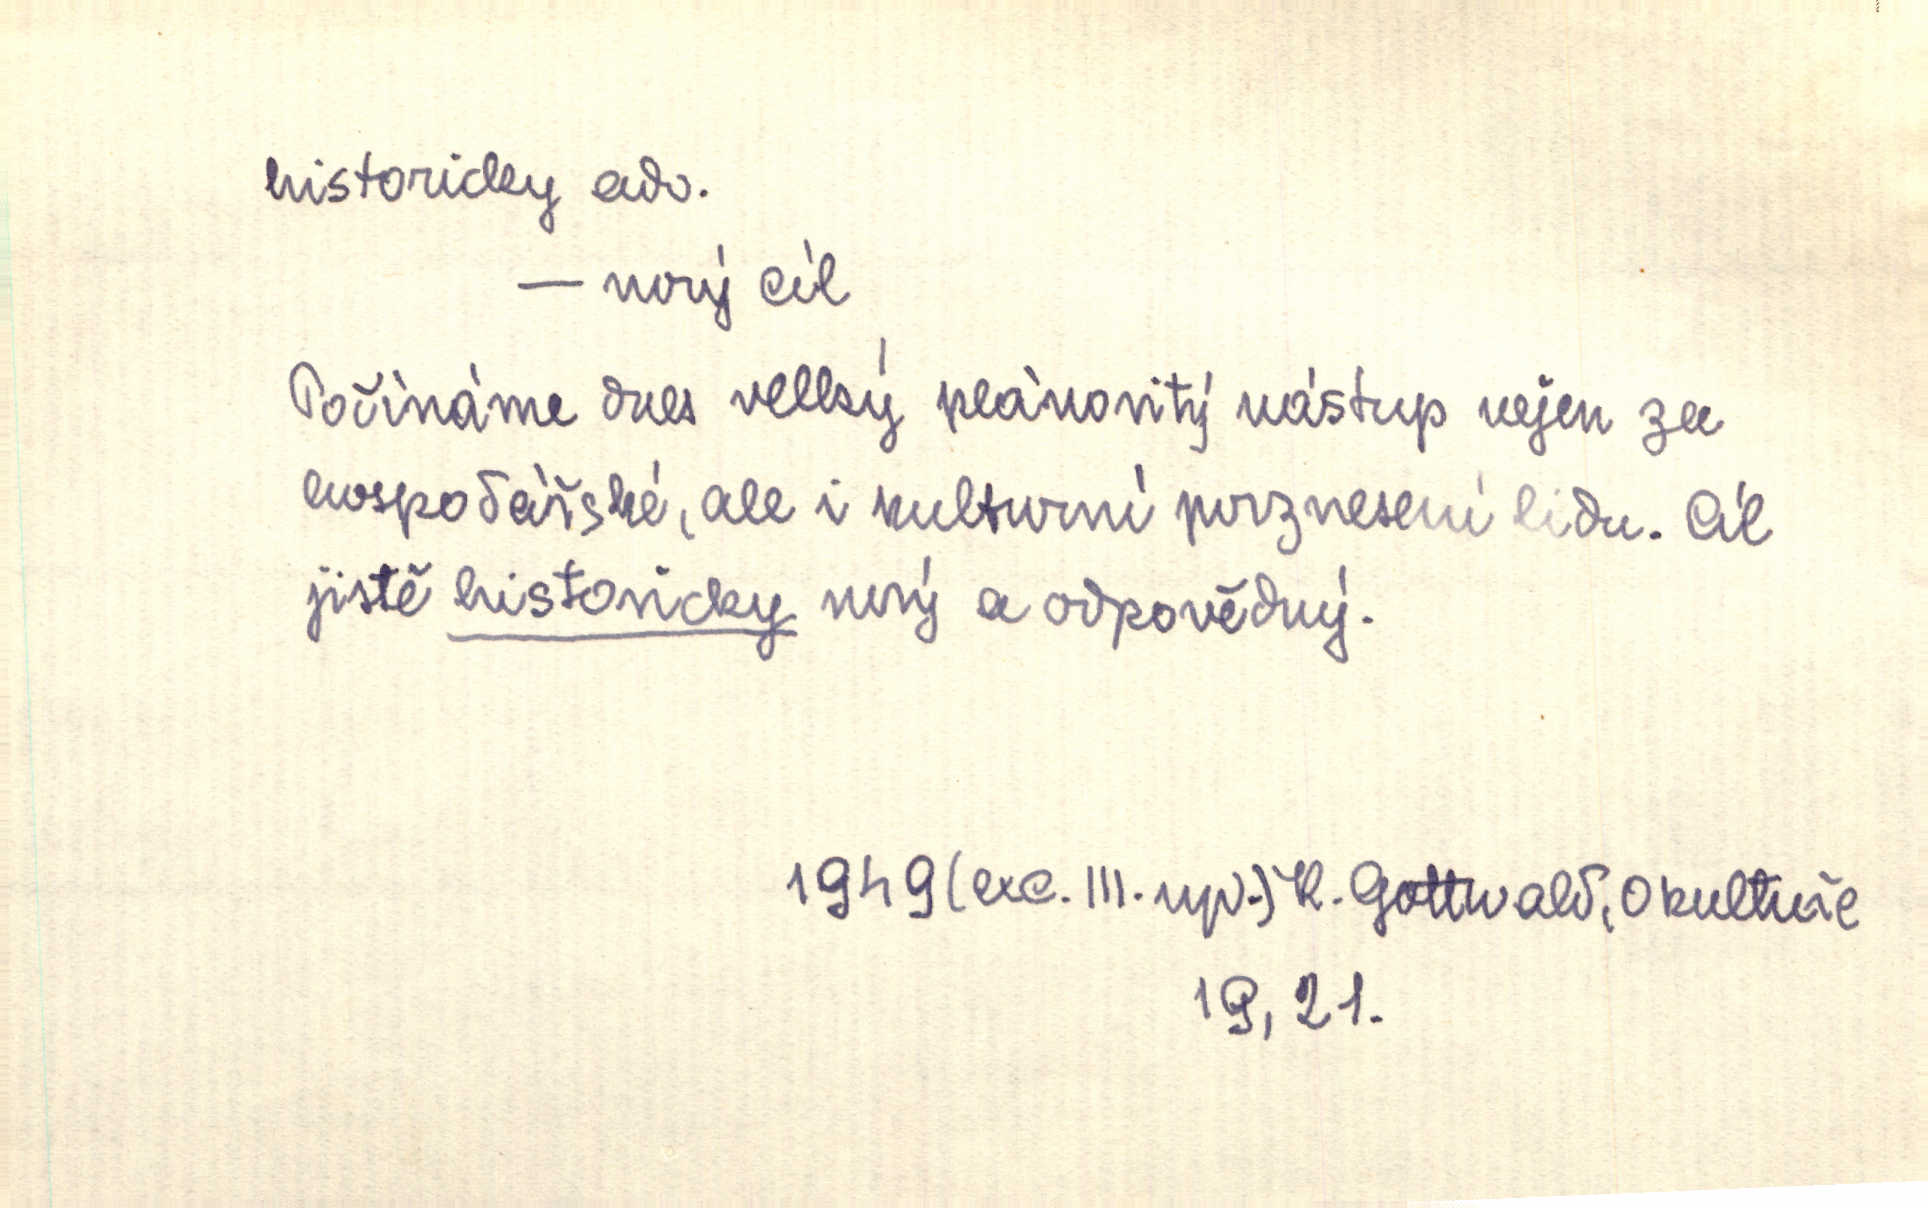 historicky adv.
— nový cíl
Počínáme dnes velký plánovitý nástup nejen za
hospodářské, ale i kulturní povznesení lidu. Cíl
jistě historicky nový a odpovědný.
1949 (exc. III. vyd.) K. Gottwald, O kultuře
19, 21.